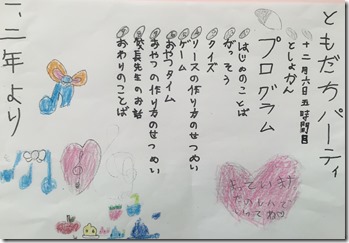 ともだちパーティ
十二月六日五時間目
としょかん
プログラム
はじめのことば
がっそう
クイズ
リースの作り方のせつめい
ゲーム
おやつの作り方のせつめい
おやつタイム
校長先生のお話
おわりのことば
一、二年より